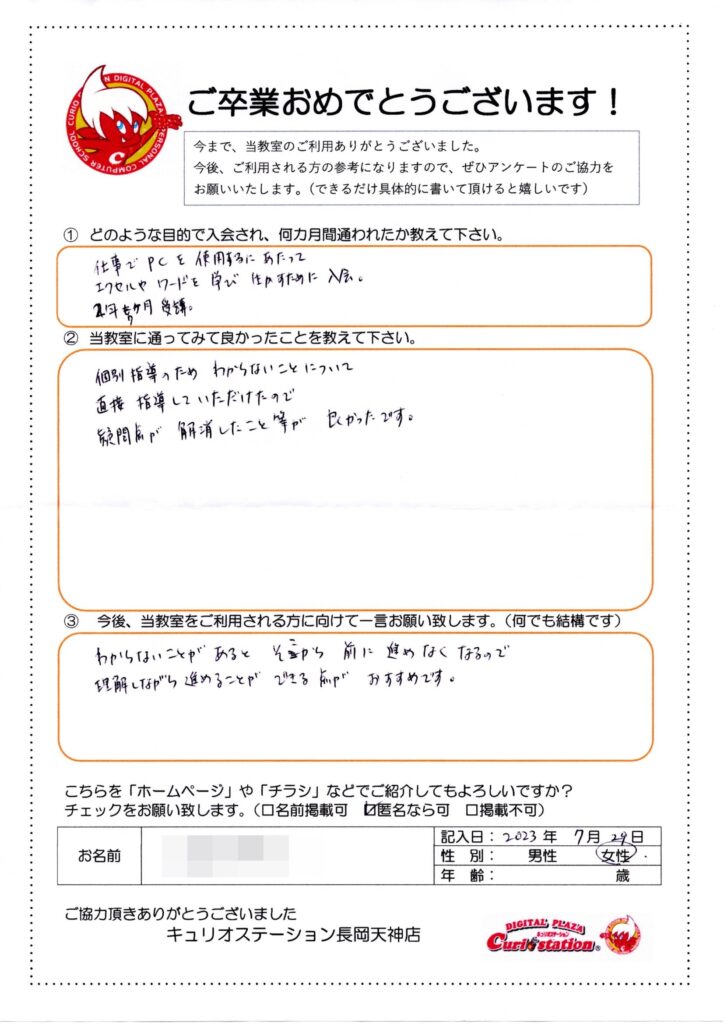 CURIO STATION DIGITAL PLAZA PERSONAL COMPUTER SCHOOL
C
ご卒業おめでとうございます！
今まで、当教室のご利用ありがとうございました。
今後、ご利用される方の参考になりますので、ぜひアンケートのご協力を
お願いいたします。（できるだけ具体的に書いて頂けると嬉しいです）
① どのような目的で入会され、何カ月間通われたか教えて下さい。
仕事でPCを使用するにあたって
エクセルやワードを学び 生かすために入会。
ヶ月 受講。
② 当教室に通ってみて良かったことを教えて下さい。
個別指導のため わからないことについて
直接 指導していただけたので
疑問点が 解消したこと等が 良かったです。
③ 今後、当教室をご利用される方に向けて一言お願い致します。（何でも結構です）
わからないことが あると そこから 前に 進めなくなるので
理解しながら進めることが できる点が おすすめです。
こちらを「ホームページ」や「チラシ」などでご紹介してもよろしいですか？
チェックをお願い致します。（□名前掲載可 ☑匿名なら可 □掲載不可）
お名前
記入日：2023年 7月 29日
性 別： 男性 女性
年 齢： 歳
ご協力頂きありがとうございました
キュリオステーション長岡天神店
DIGITAL PLAZA
キュリオステーション
Curio station®